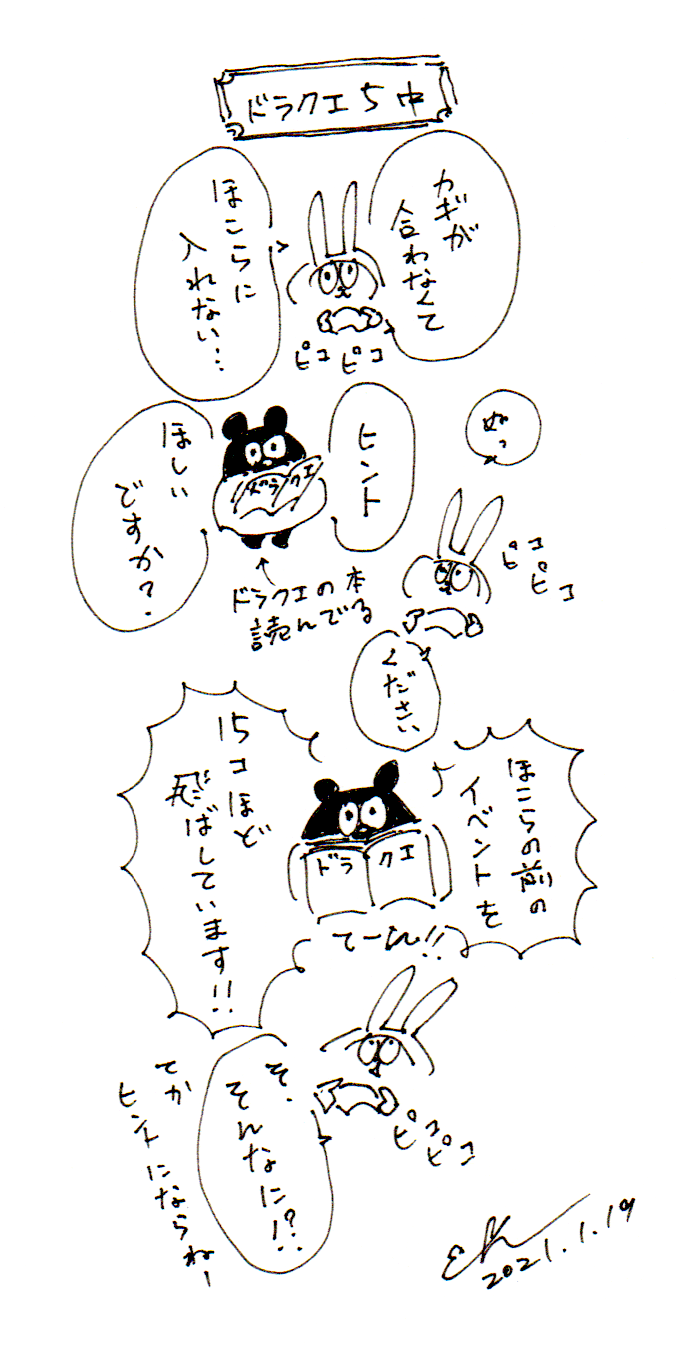 ドラクエ5中
カギが
合わなくて
ほこらに
入れない…
ピコピコ
ぬっ
ヒント
ほしい
ですか?
ドラクエ
ドラクエの本
読んでる
ピコ
ピコ
ください
ほこらの前の
イベントを
15コほど
飛ばしています!!
ドラクエ
てーん!!
そ、
そんなに!?
ピコ
ピコ
てか
ヒントにならねー
2021.1.19